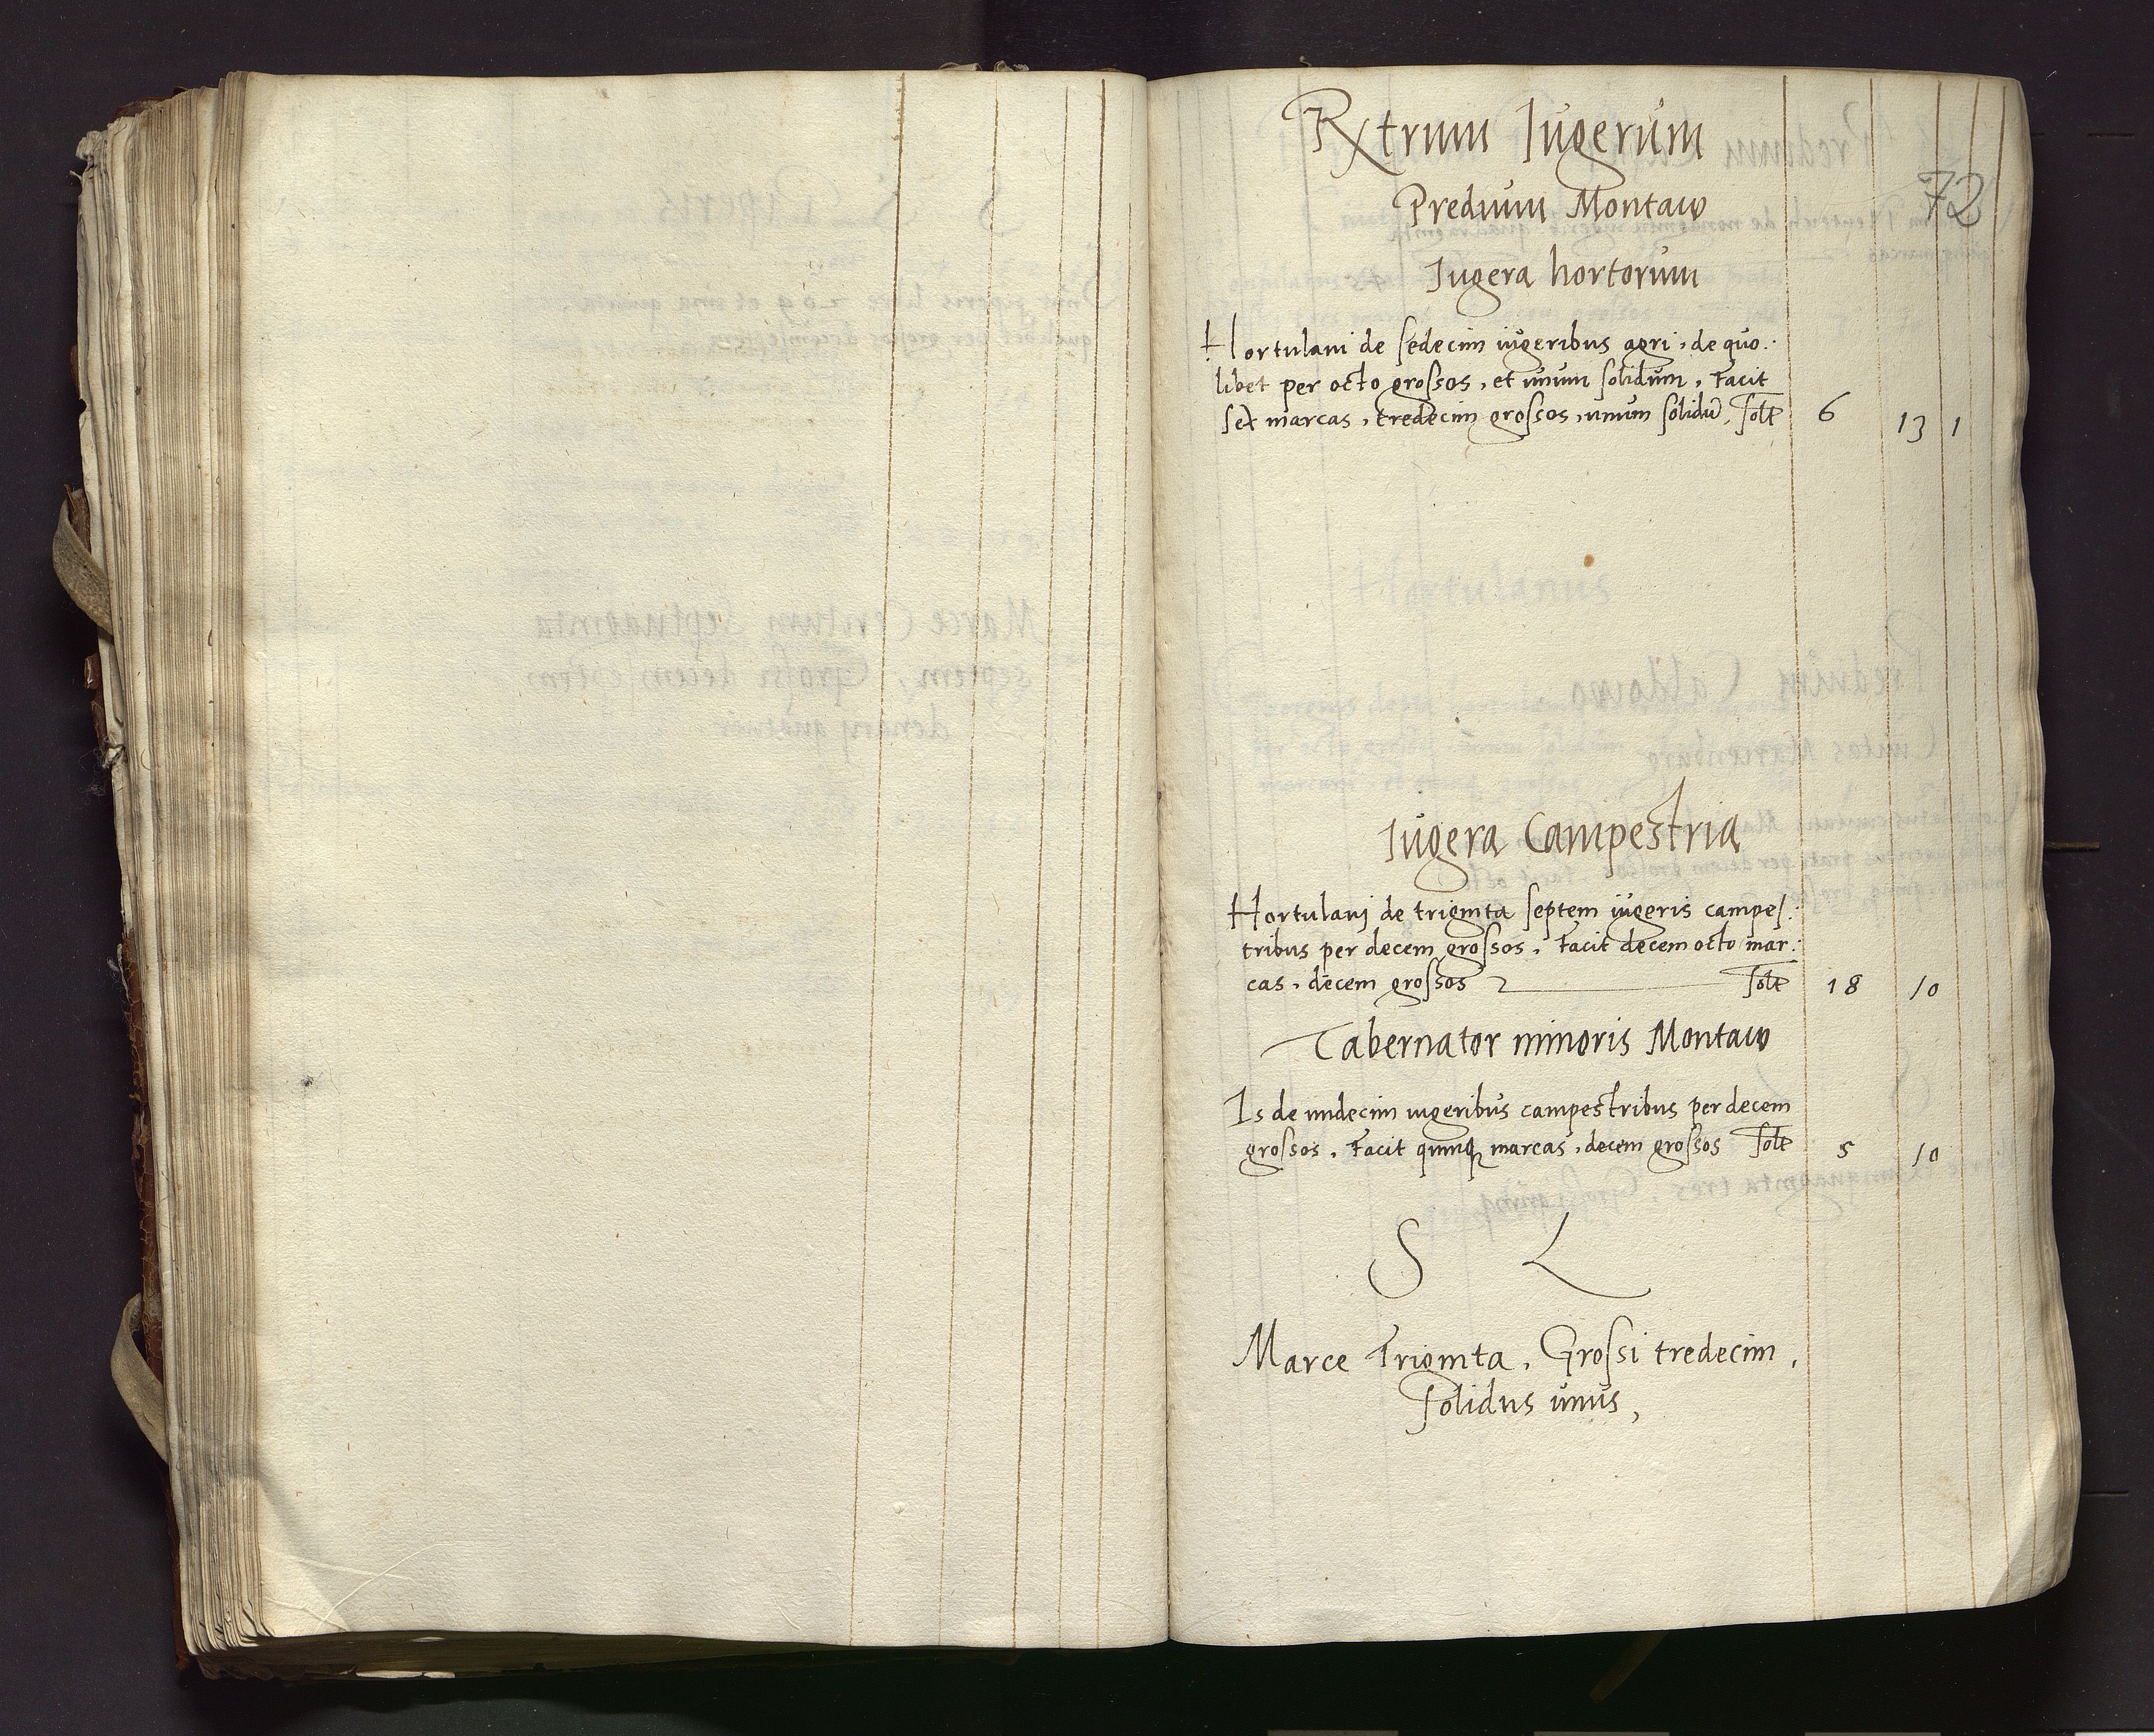 Rxtrum Iugerum
72
Predium Montaw
Iugera hortorum
Hortulani de sedecim iugeribus agri, de quo.
libet per octo grossos, et unum solidum, Facit
sex marcas, tredecim grossos, unum solidū, solt 6 13 1
Iugera Campestria
Hortulanj de triginta septem iugeris campes.
tribus per decem grossos, Facit decem octo mar.
cas, decem grossos solt 18 10
Tabernator minoris Montaw
Is de undecim iugeribus campestribus per decem
grossos, Facit quinq marcas, decem grossos solt 5 10
S L
Marce Triginta, Grossi tredecim,
Solidus unus,